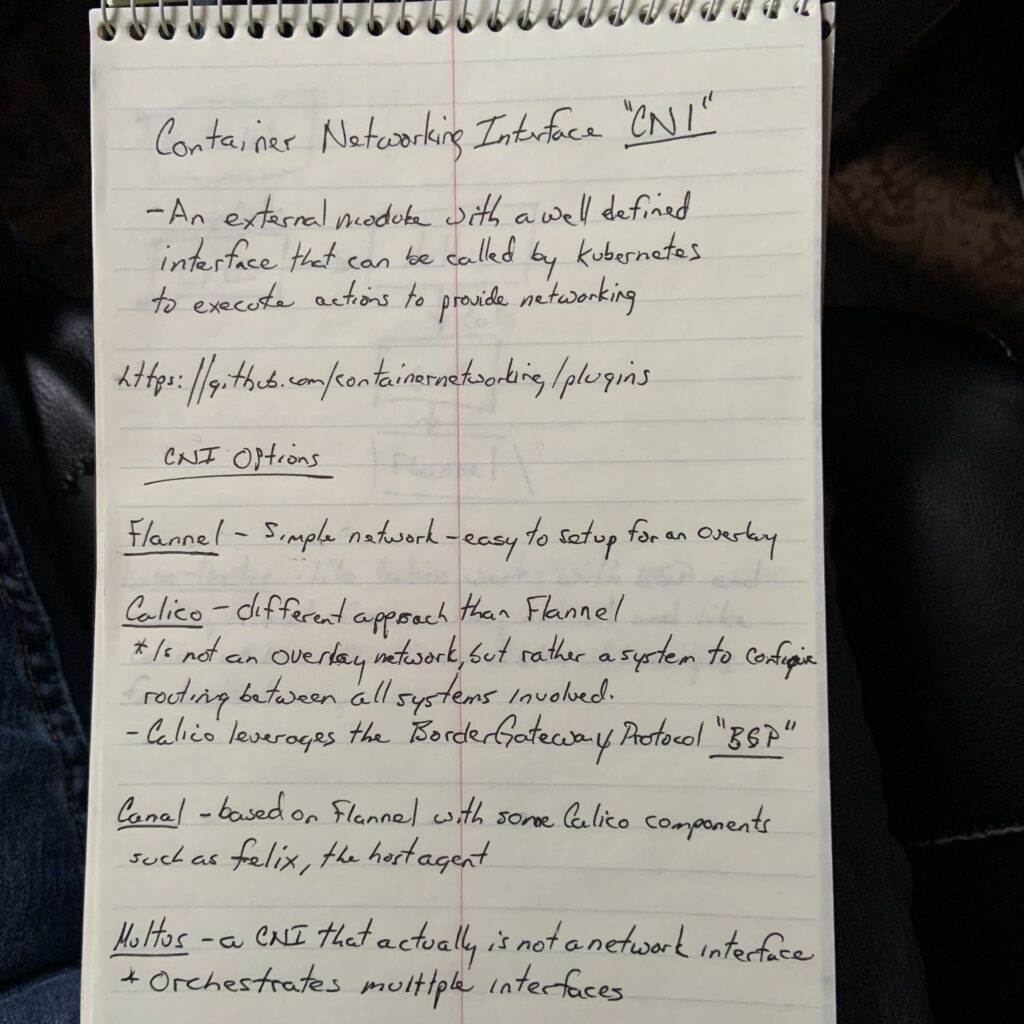 Container Networking Interface "CNI"
-An external module with a well defined
interface that can be called by Kubernetes
to execute actions to provide networking
https://github.com/containernetworking/plugins
CNI Options
Flannel - Simple network - easy to setup for an overlay
Calico - different approach than Flannel
*Is not an overlay network, but rather a system to configure
routing between all systems involved.
- Calico leverages the Border Gateway Protocol "BGP"
Canal - based on Flannel with some Calico components
such as felix, the host agent
Multus - a CNI that actually is not a network interface
* Orchestrates multiple interfaces